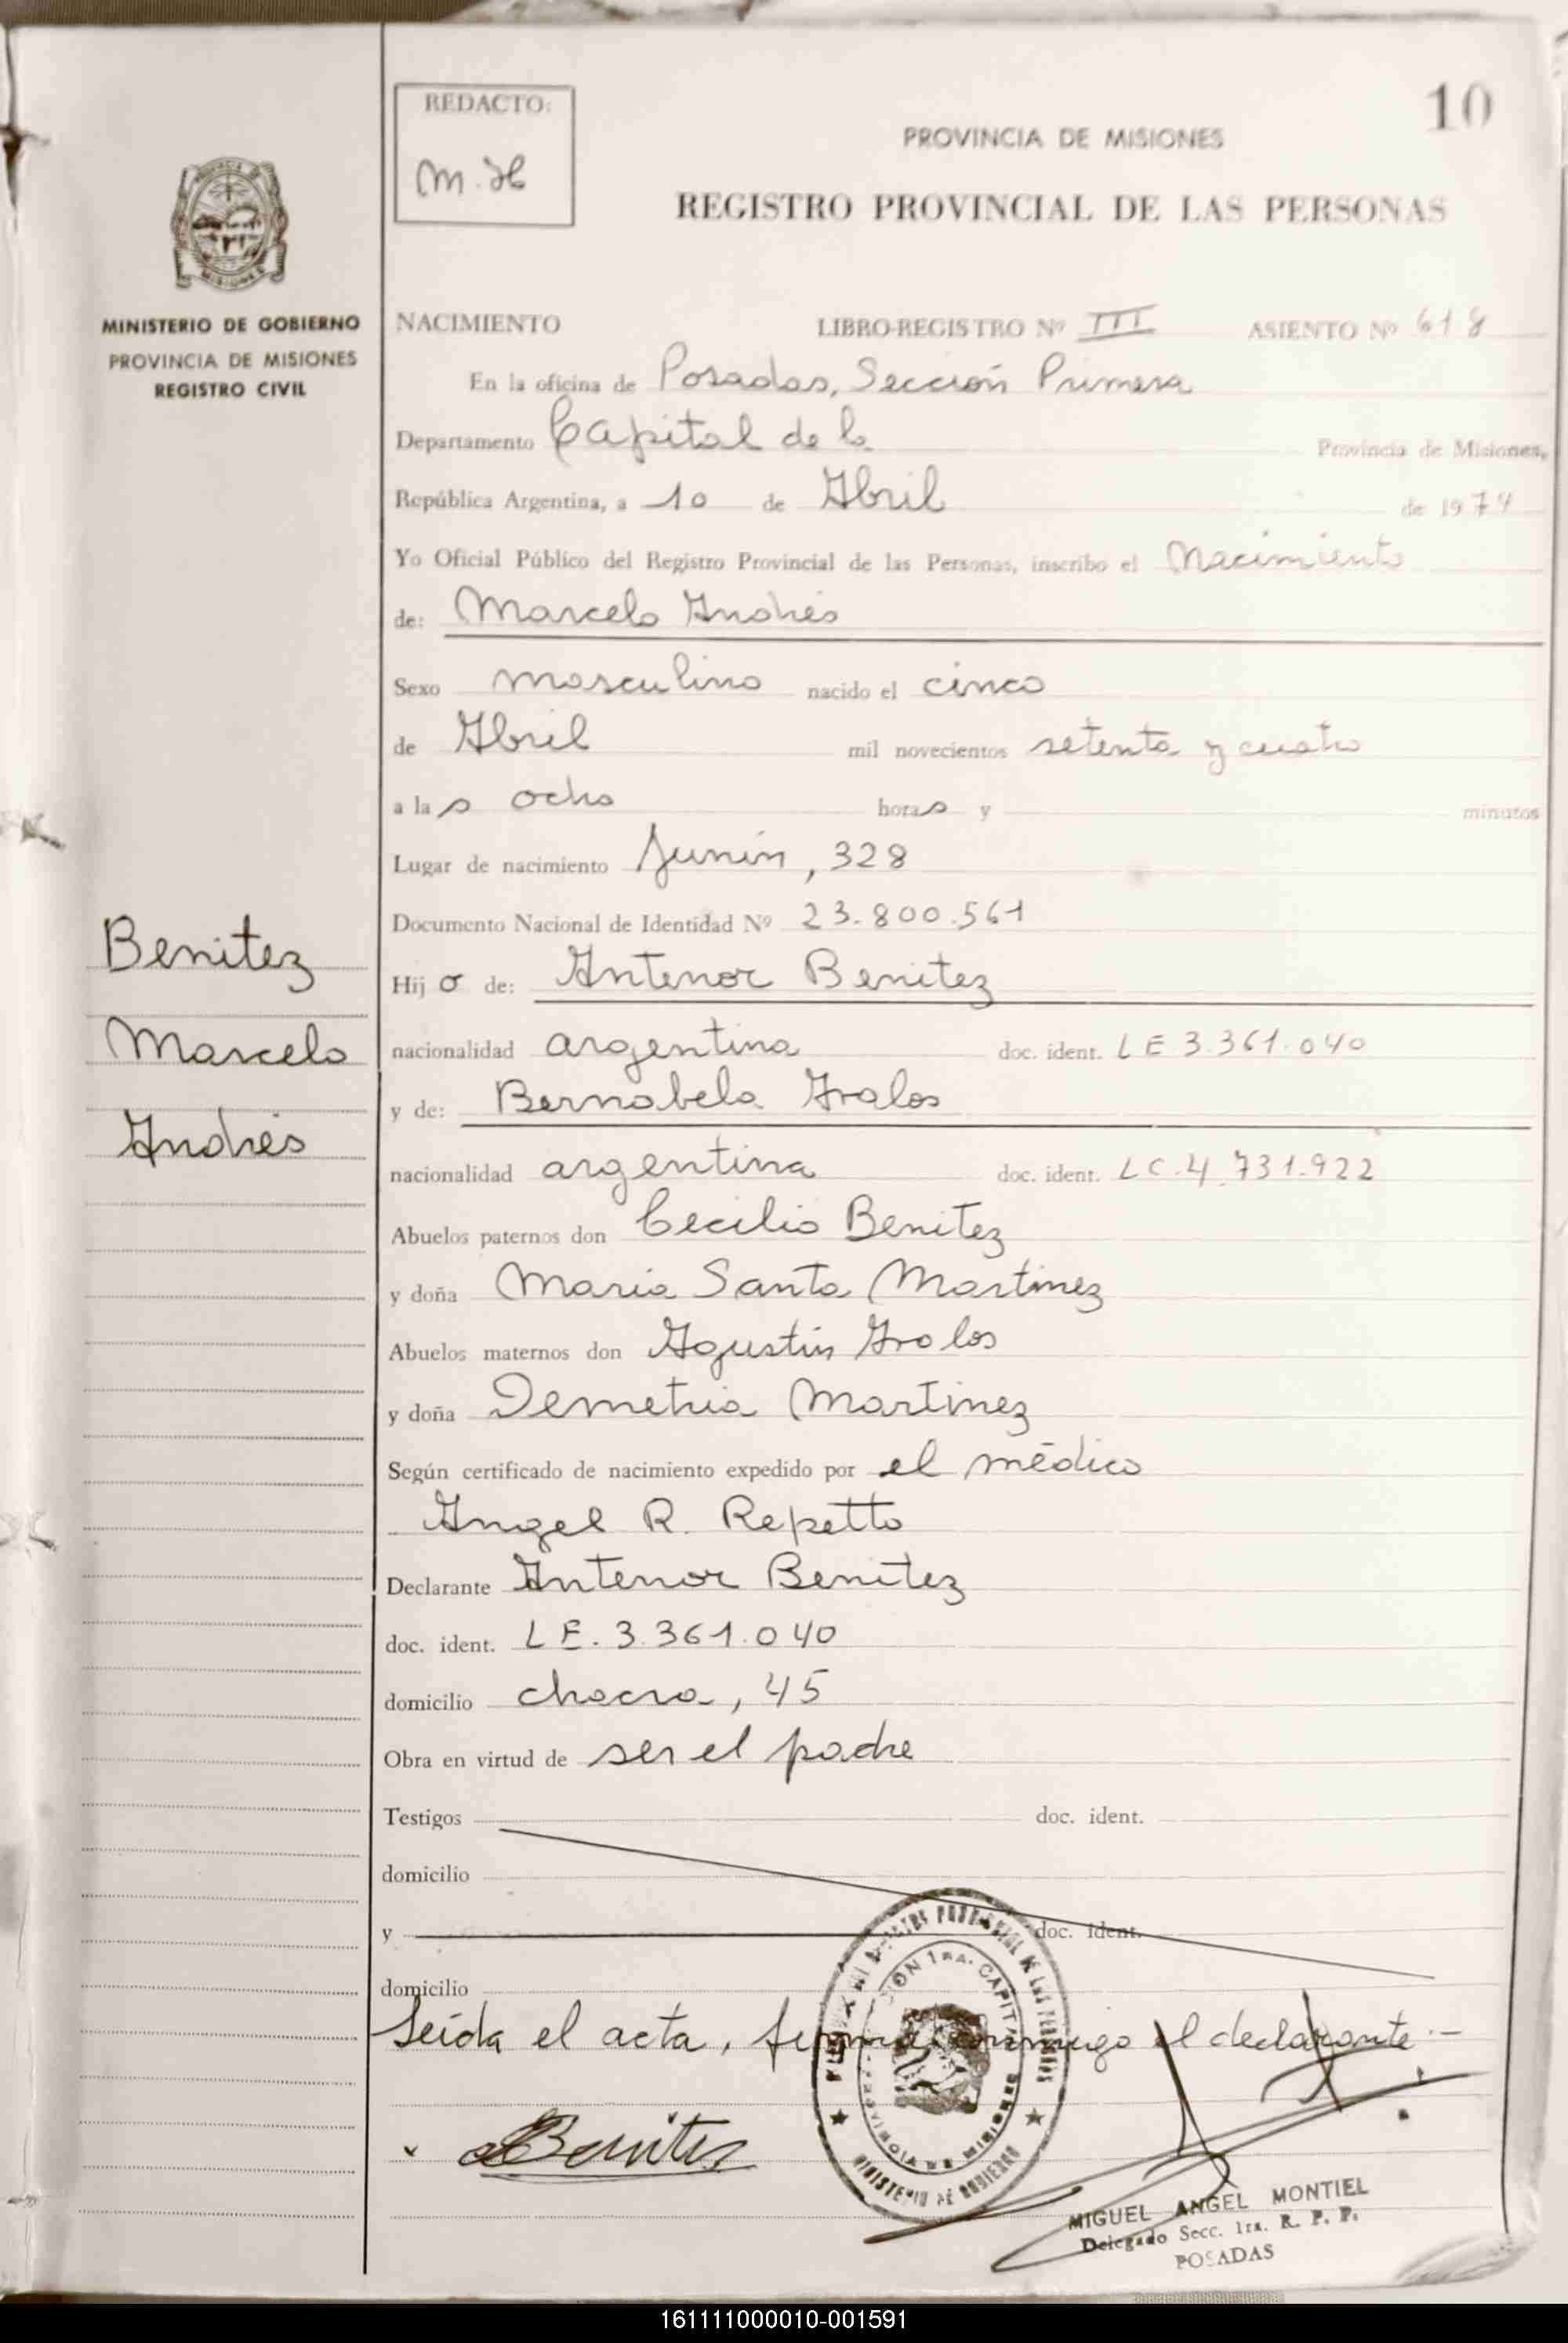 10
REDACTO:
M. H
PROVINCIA DE MISIONES
REGISTRO PROVINCIAL DE LAS PERSONAS
MISIONES
MINISTERIO DE GOBIERNO
PROVINCIA DE MISIONES
REGISTRO CIVIL
NACIMIENTO LIBRO-REGISTRO Nº III ASIENTO Nº 618
En la oficina de Posadas, Sección Primera
Departamento Capital de la Provincia de Misiones,
República Argentina, a 10 de Abril de 1974
Yo Oficial Público del Registro Provincial de las Personas, inscribo el Nacimiento
de: Marcelo Andrés
Sexo masculino nacido el cinco
de Abril mil novecientos setenta y cuatro
a las ocho horas y minutos
Lugar de nacimiento Junín, 328
Documento Nacional de Identidad Nº 23.800.561
Benitez
Marcelo
Andrés
Hijo de: Antenor Benitez
nacionalidad argentina doc. ident. LE 3.361.040
y de: Bernabela Avalos
nacionalidad argentina doc. ident. LC.4.731.922
Abuelos paternos don Cecilio Benitez
y doña Maria Santa Martinez
Abuelos maternos don Agustín Avalos
y doña Demetria Martinez
Según certificado de nacimiento expedido por el médico
Angel R. Repetto
Declarante Antenor Benitez
doc. ident. LE. 3.361.040
domicilio chacra, 45
Obra en virtud de ser el padre
Testigos doc. ident.
domicilio
y doc. ident.
domicilio
Leída el acta, firma conmigo el declarante.-
Benitez
MINISTERIO DE GOBIERNO
PROVINCIA DE MISIONES
MIGUEL ANGEL MONTIEL
Delegado Secc. 1ra. R. P. P.
POSADAS
161111000010-001591